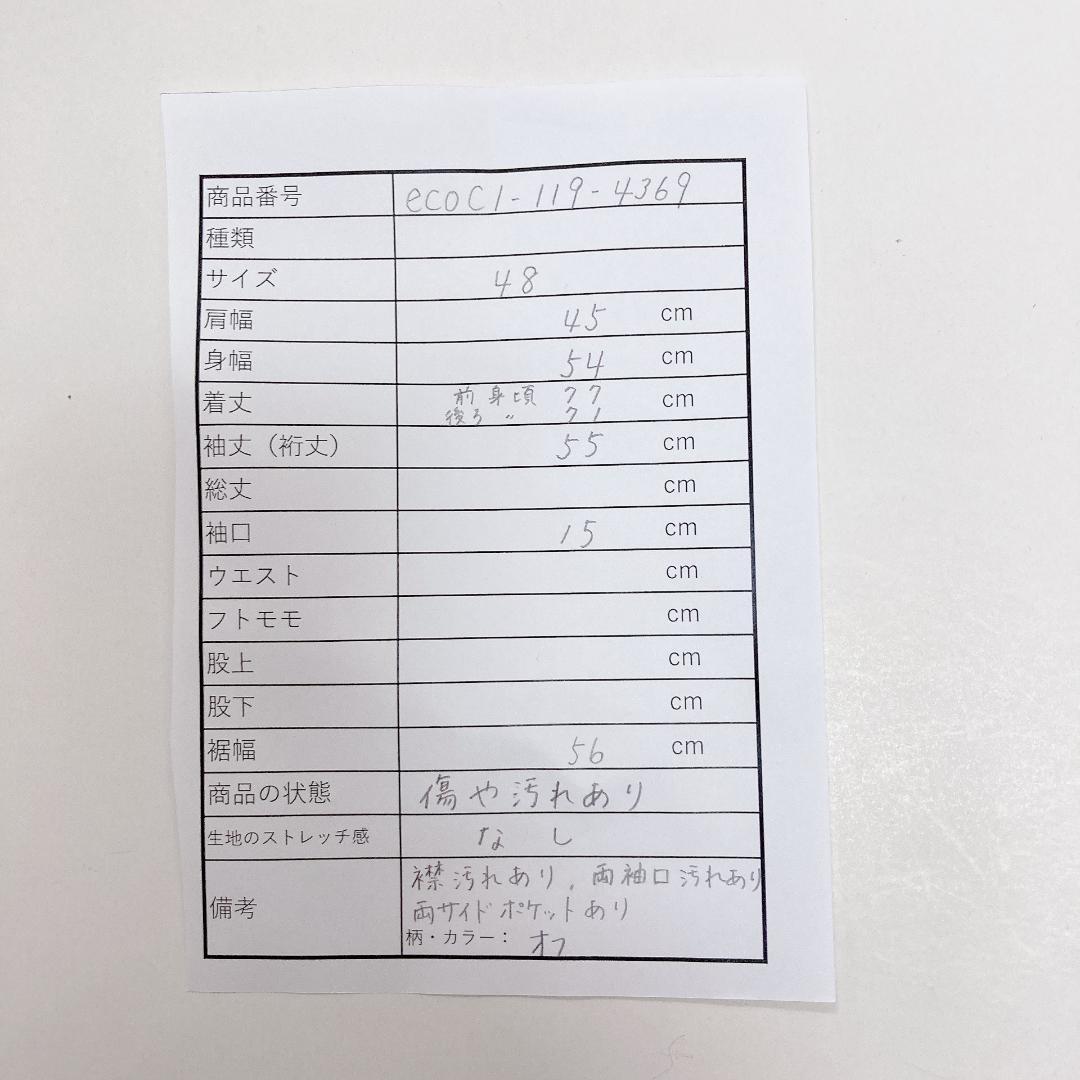 商品番号 ecoC1-119-4369
種類
サイズ 48
肩幅 45 cm
身幅 54 cm
着丈 前身頃 77 cm
後ろ 〃 71
袖丈（裄丈） 55 cm
総丈 cm
袖口 15 cm
ウエスト cm
フトモモ cm
股上 cm
股下 cm
裾幅 56 cm
商品の状態 傷や汚れあり
生地のストレッチ感 なし
備考 襟汚れあり、両袖口汚れあり
両サイドポケットあり
柄・カラー： オフ